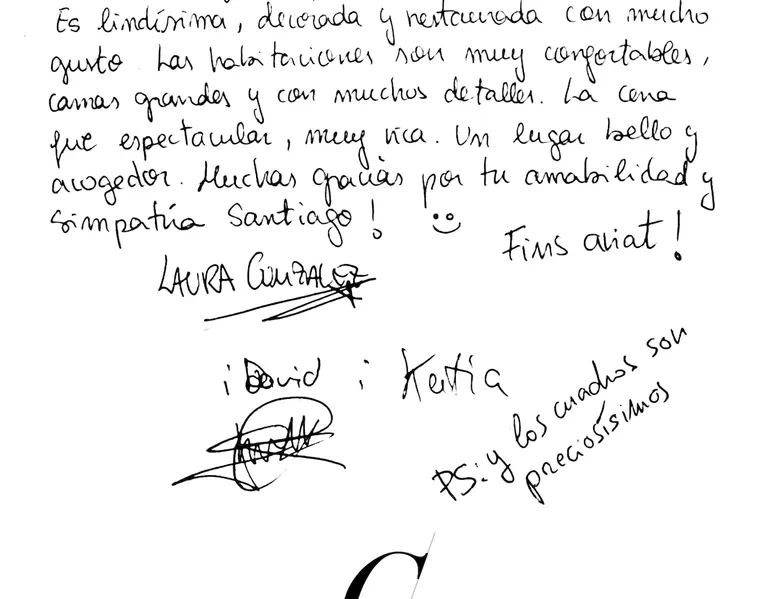 Es lindísima, decorada y restaurada con mucho
gusto. Las habitaciones son muy confortables,
camas grandes y con muchos detalles. La cena
fue espectacular, muy rica. Un lugar bello y
acogedor. Muchas gracias por tu amabilidad y
simpatía Santiago!
Fins aviat!
LAURA GONZALEZ
i David i Katia
PS: y los cuadros son
preciosísimos
C